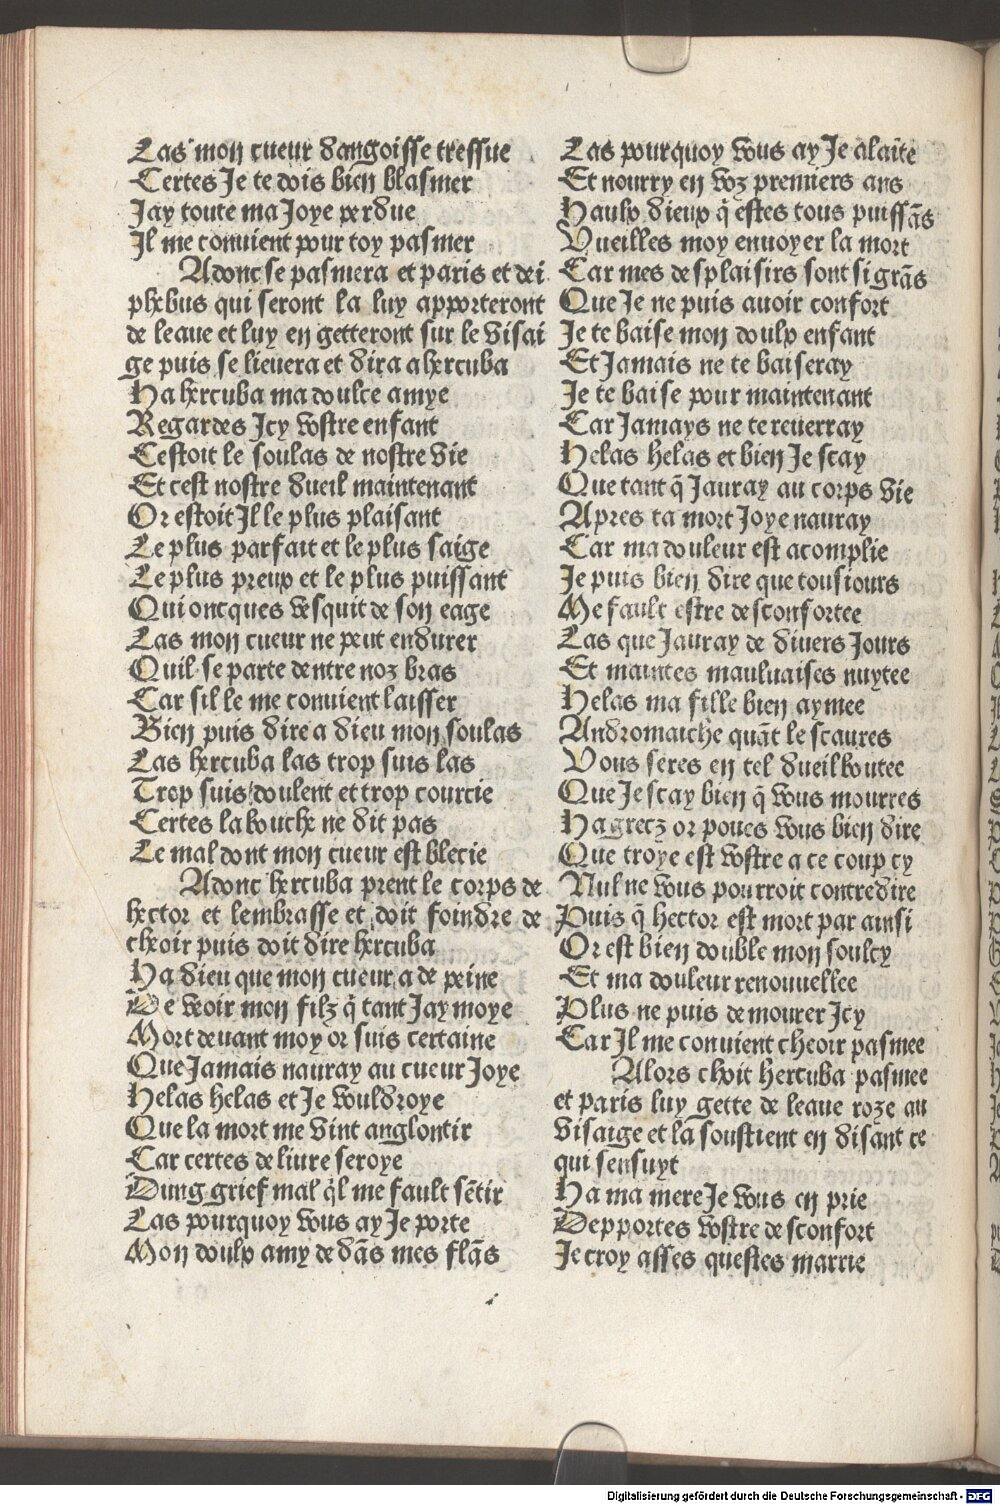 Las mon cueur dangoisse tressue
Certes Je te dois bien blasmer
Jay toute ma Joye perdue
Il me conuient pour toy pasmer
Adonc se pasmera et paris et dei
phebus qui seront la luy apporteront
de leaue et luy en getteront sur le visai
ge puis se lieuera et dira a hercuba
Ha hercuba ma doulce amye
Regardes Jcy vostre enfant
Cestoit le soulas de nostre vie
Et cest nostre dueil maintenant
Or estoit Jl le plus plaisant
Le plus parfait et le plus saige
Le plus preux et le plus puissant
Qui oncques vesquit de son eage
Las mon cueur ne peut endurer
Quil se parte dentre noz bras
Car sil le me conuient laisser
Bien puis dire a dieu mon soulas
Las hercuba las trop suis las
Trop suis doulent et trop courcie
Certes la bouche ne dit pas
Le mal dont mon cueur est blecie
Adonc hercuba prent le corps de
hector et lembrasse et doit foindre de
cheoir puis doit dire hercuba
Ha dieu que mon cueur a de peine
De veoir mon filz q̄ tant Jay moye
Mort deuant moy or suis certaine
Que Jamais nauray au cueur Joye
Helas helas et Je vouldroye
Que la mort me vint anglontir
Car certes deliure seroye
Dung grief mal q̄l me fault sētir
Las pourquoy vous ay Je porte
Mon doulx amy de dās mes flās
Las pourquoy vous ay Je alaite
Et nourry en voz premiers ans
Haulx dieux q̄ estes tous puissās
Vueilles moy enuoyer la mort
Car mes desplaisirs sont si grās
Que Je ne puis auoir confort
Je te baise mon doulx enfant
Et Jamais ne te baiseray
Je te baise pour maintenant
Car Jamays ne te reuerray
Helas helas et bien Je scay
Que tant q̄ Jauray au corps vie
Apres ta mort Joye nauray
Car ma douleur est acomplie
Je puis bien dire que tousiours
Me fault estre desconfortee
Las que Jauray de diuers Jours
Et maintes mauluaises nuytee
Helas ma fille bien aymee
Andromatche quāt le scaures
Vous seres en tel dueil boutee
Que Je scay bien q̄ vous mourres
Ha grecz or poues vous bien dire
Que troye est vostre a ce coup cy
Nul ne vous pourroit contredire
Puis q̄ hector est mort par ainsi
Or est bien double mon soulcy
Et ma douleur renouuellee
Plus ne puis demourer Jcy
Car Jl me conuient cheoir pasmee
Alors choit hercuba pasmee
et paris luy gette de leaue roze au
visaige et la soustient en disant ce
qui sensuyt
Ha ma mere Je vous en prie
Depportes vostre desconfort
Je croy asses questes marrie
Digitalisierung gefördert durch die Deutsche Forschungsgemeinschaft - DFG